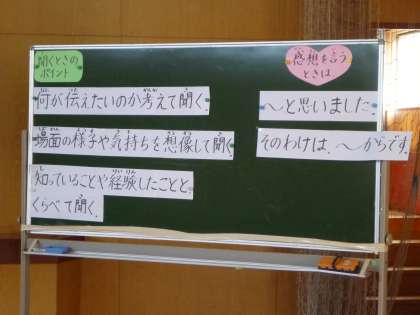 聞くときの
ポイント
何が伝えたいのか考えて聞く。
場面の様子や気持ちを想像して聞く。
知っていることや経験したことと、
くらべて聞く。
感想を言う
ときは
～と思いました。
そのわけは、～からです。